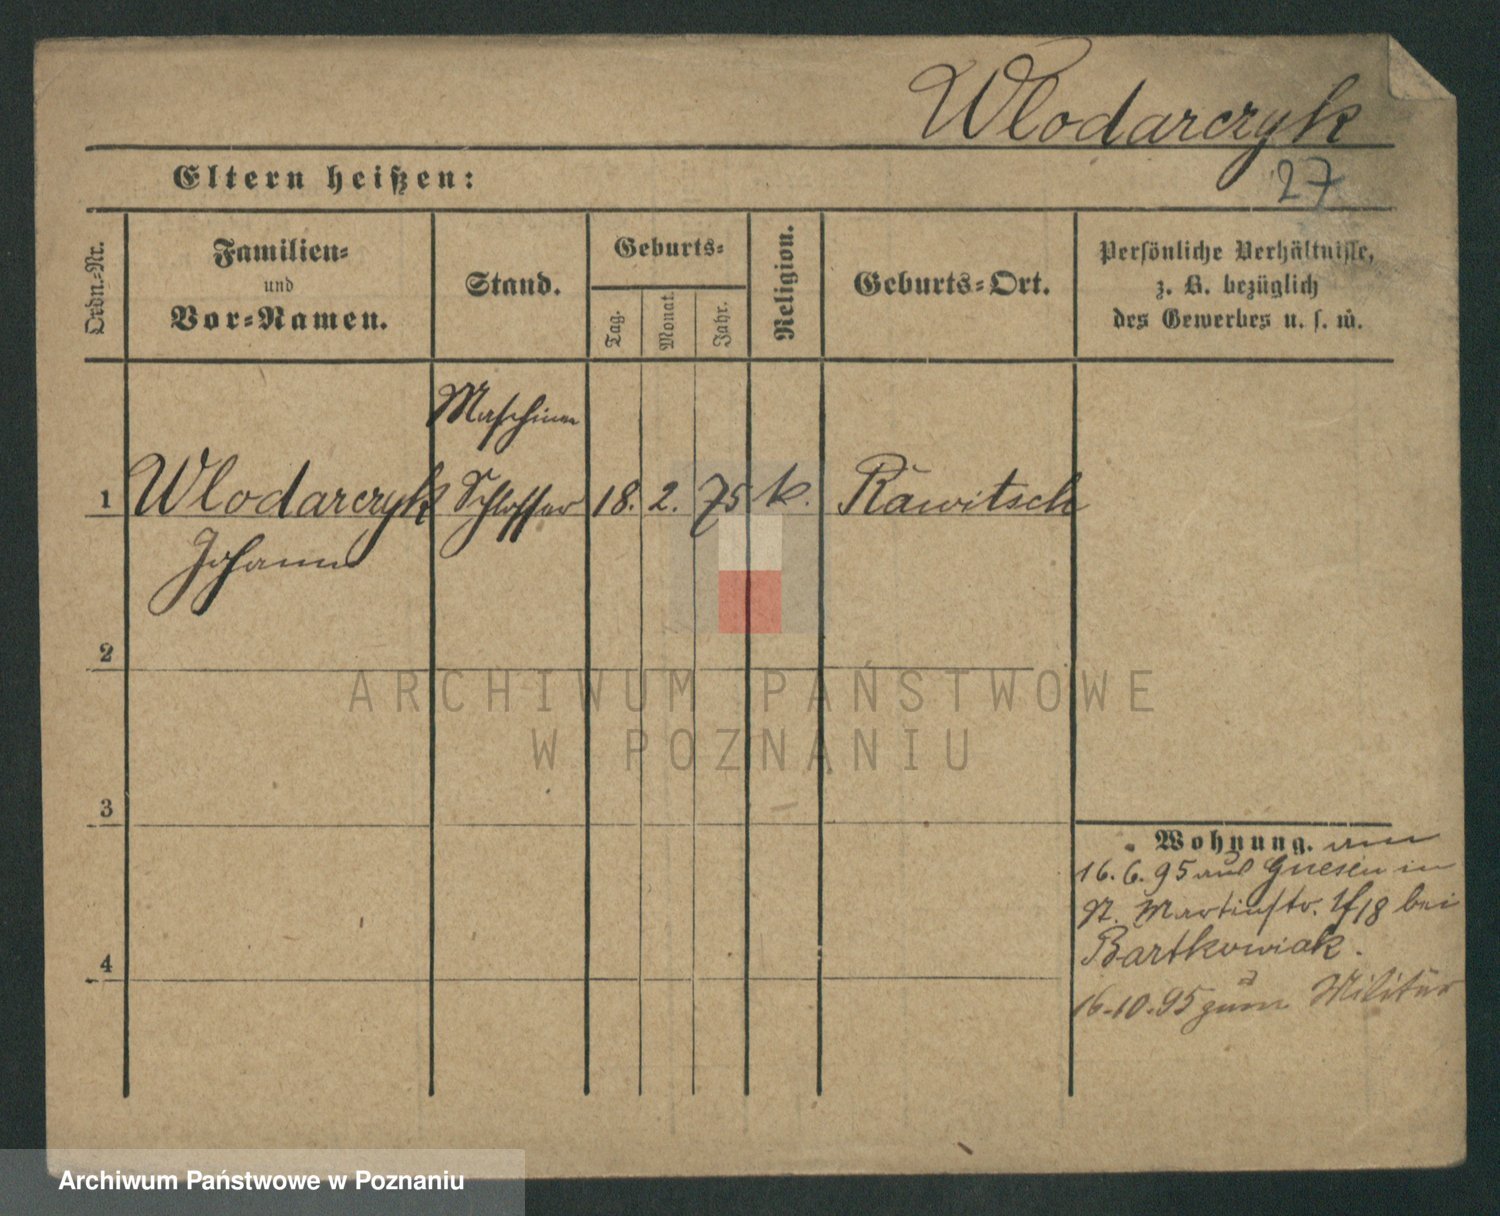 Wlodarczyk
27
Eltern heißen:
Ordn.-Nr.
Familien-
und
Vor-Namen.
Stand.
Geburts-
Tag.
Monat.
Jahr.
Religion.
Geburts-Ort.
Persönliche Verhältnisse,
z. B. bezüglich
des Gewerbes u. s. w.
Maschinen
1 Wlodarczyk Schlosser 18. 2. 75 k. Rawitsch
Johann
2
ARCHIWUM PAŃSTWOWE
W POZNANIU
3
Wohnung. am
16. 6. 95 aus Gnesen in
St. Martinstr. 18 bei
Bartkowiak.
4
16.10.95 zum Militär
Archiwum Państwowe w Poznaniu